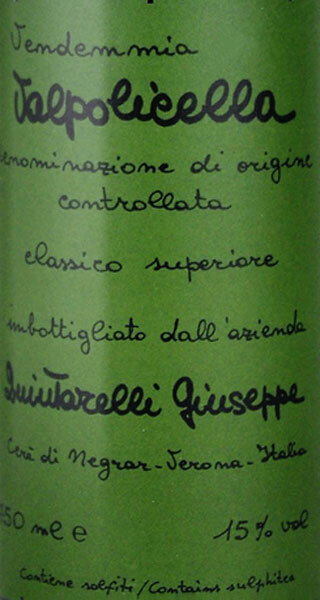 Vendemmia
Valpolicella
enominazione di origine
controllata
classico superiore
imbottigliato dall'azienda
Quintarelli Giuseppe
Cerè di Negrar - Verona - Italia
750 ml e 15% vol
Contiene solfiti / Contains sulphites